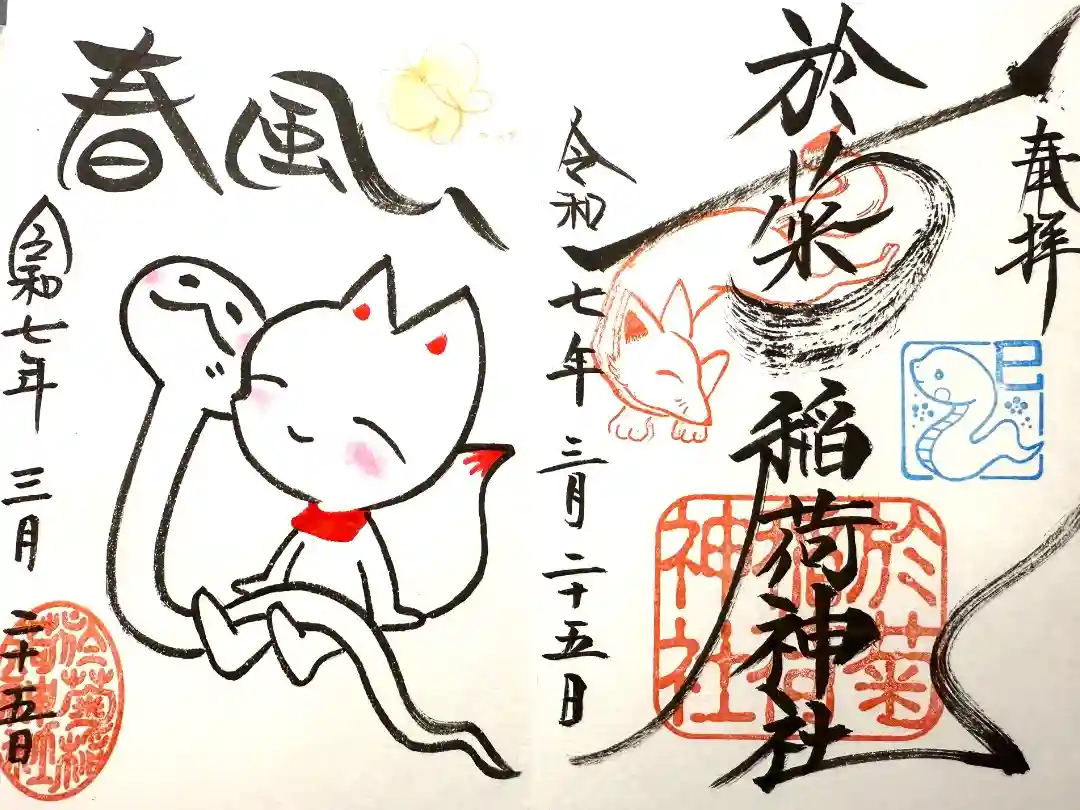 奉拝
巳
於菊稲荷神社
於菊
稲荷
神社
令和七年三月二十五日
春風
令和七年 三月 二十五日